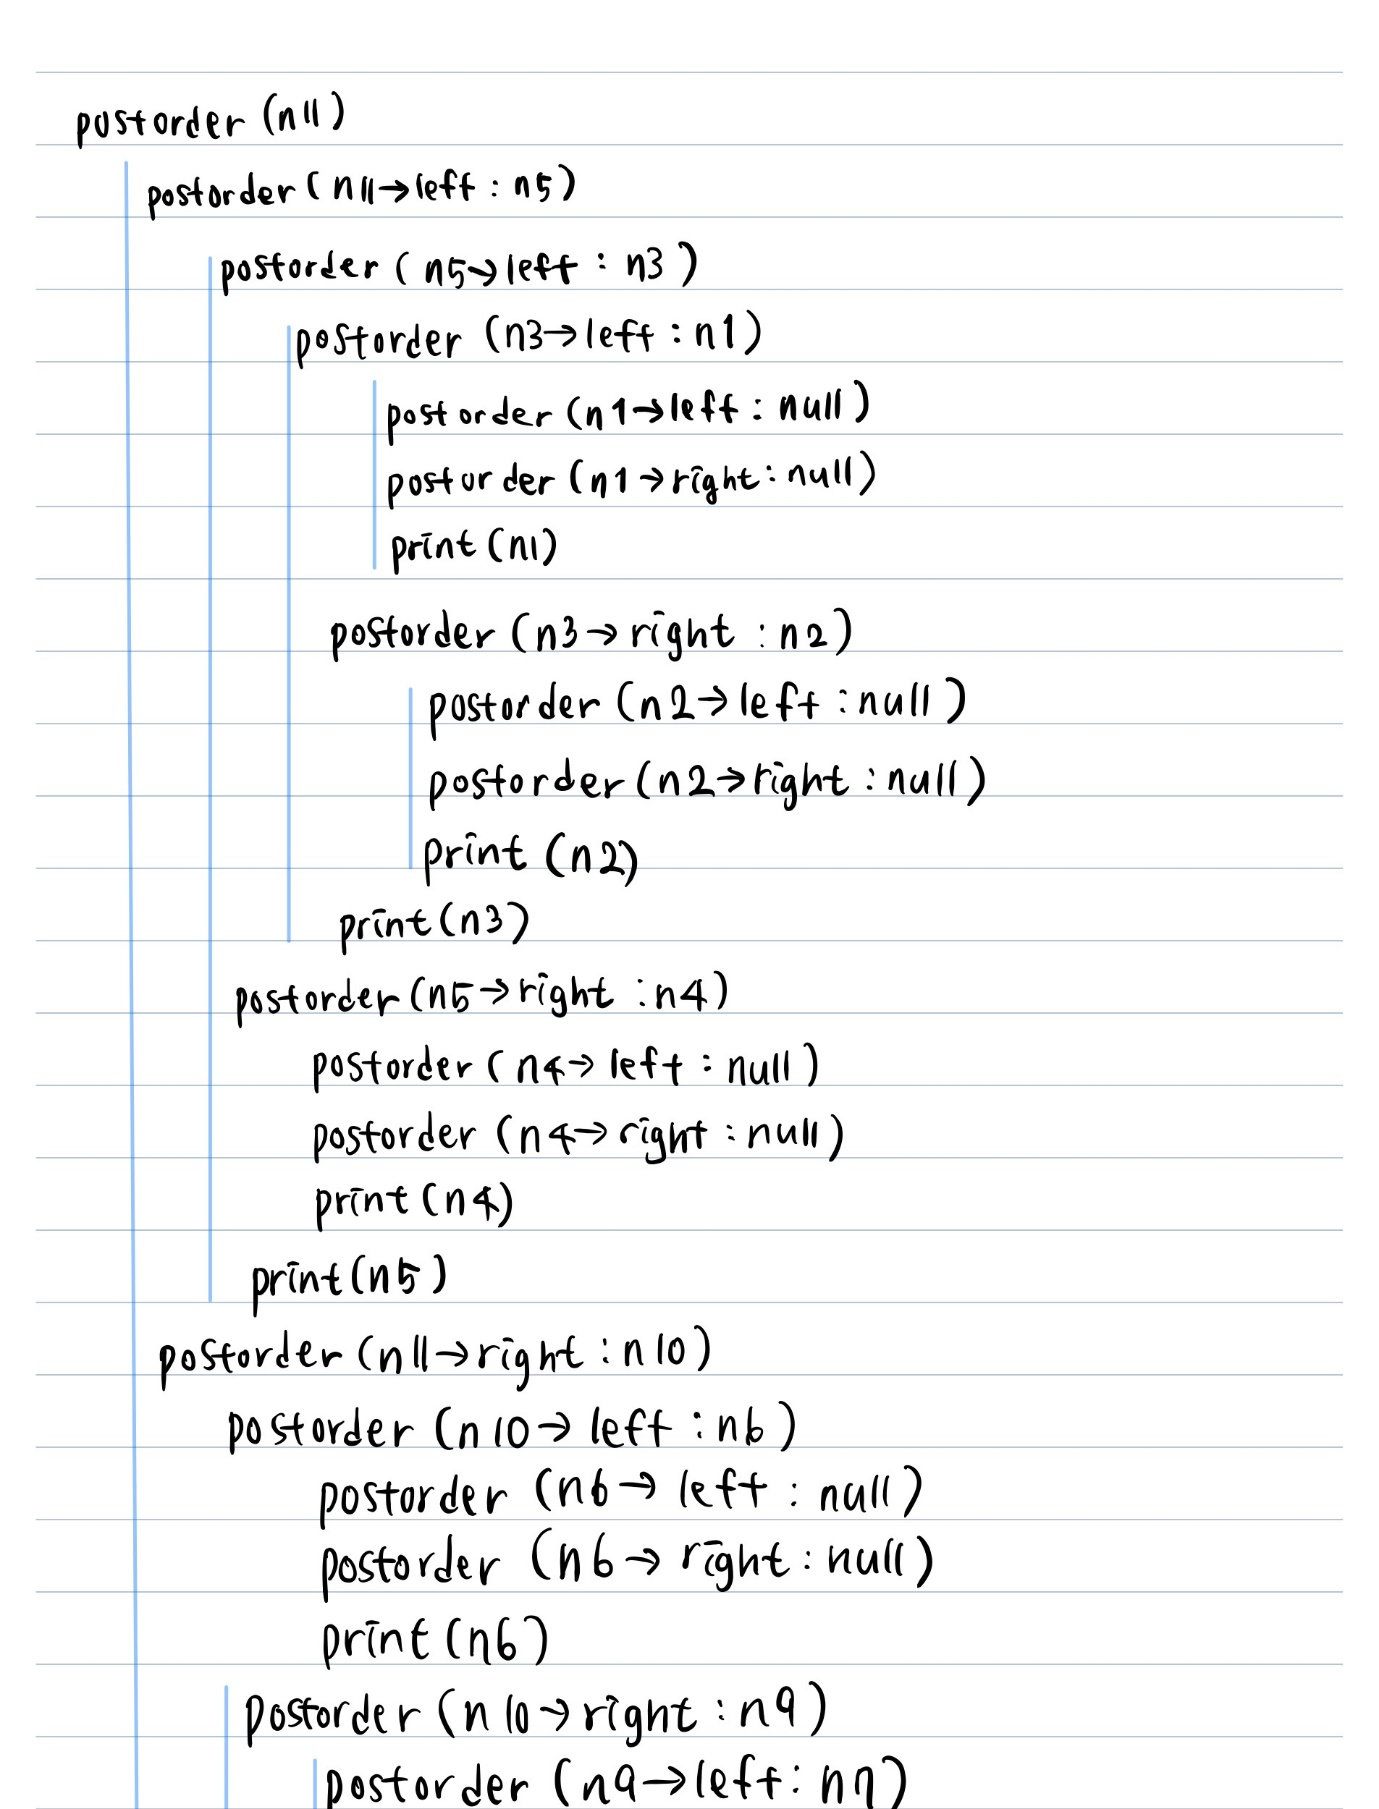 postorder (n11)
postorder (n11→left : n5)
postorder ( n5→left : n3 )
postorder (n3→left : n1)
postorder (n1→left : null)
postorder (n1→right : null)
print (n1)
postorder (n3→right : n2)
postorder (n2→left : null)
postorder (n2→right : null)
print (n2)
print (n3)
postorder (n5→right : n4)
postorder ( n4→ left : null )
postorder (n4→ right : null)
print (n4)
print (n5)
postorder (n11→right : n10)
postorder (n10→ left : n6)
postorder (n6→ left : null)
postorder (n6→ right : null)
print (n6)
postorder (n10→right : n9)
postorder (n9→left : n7)